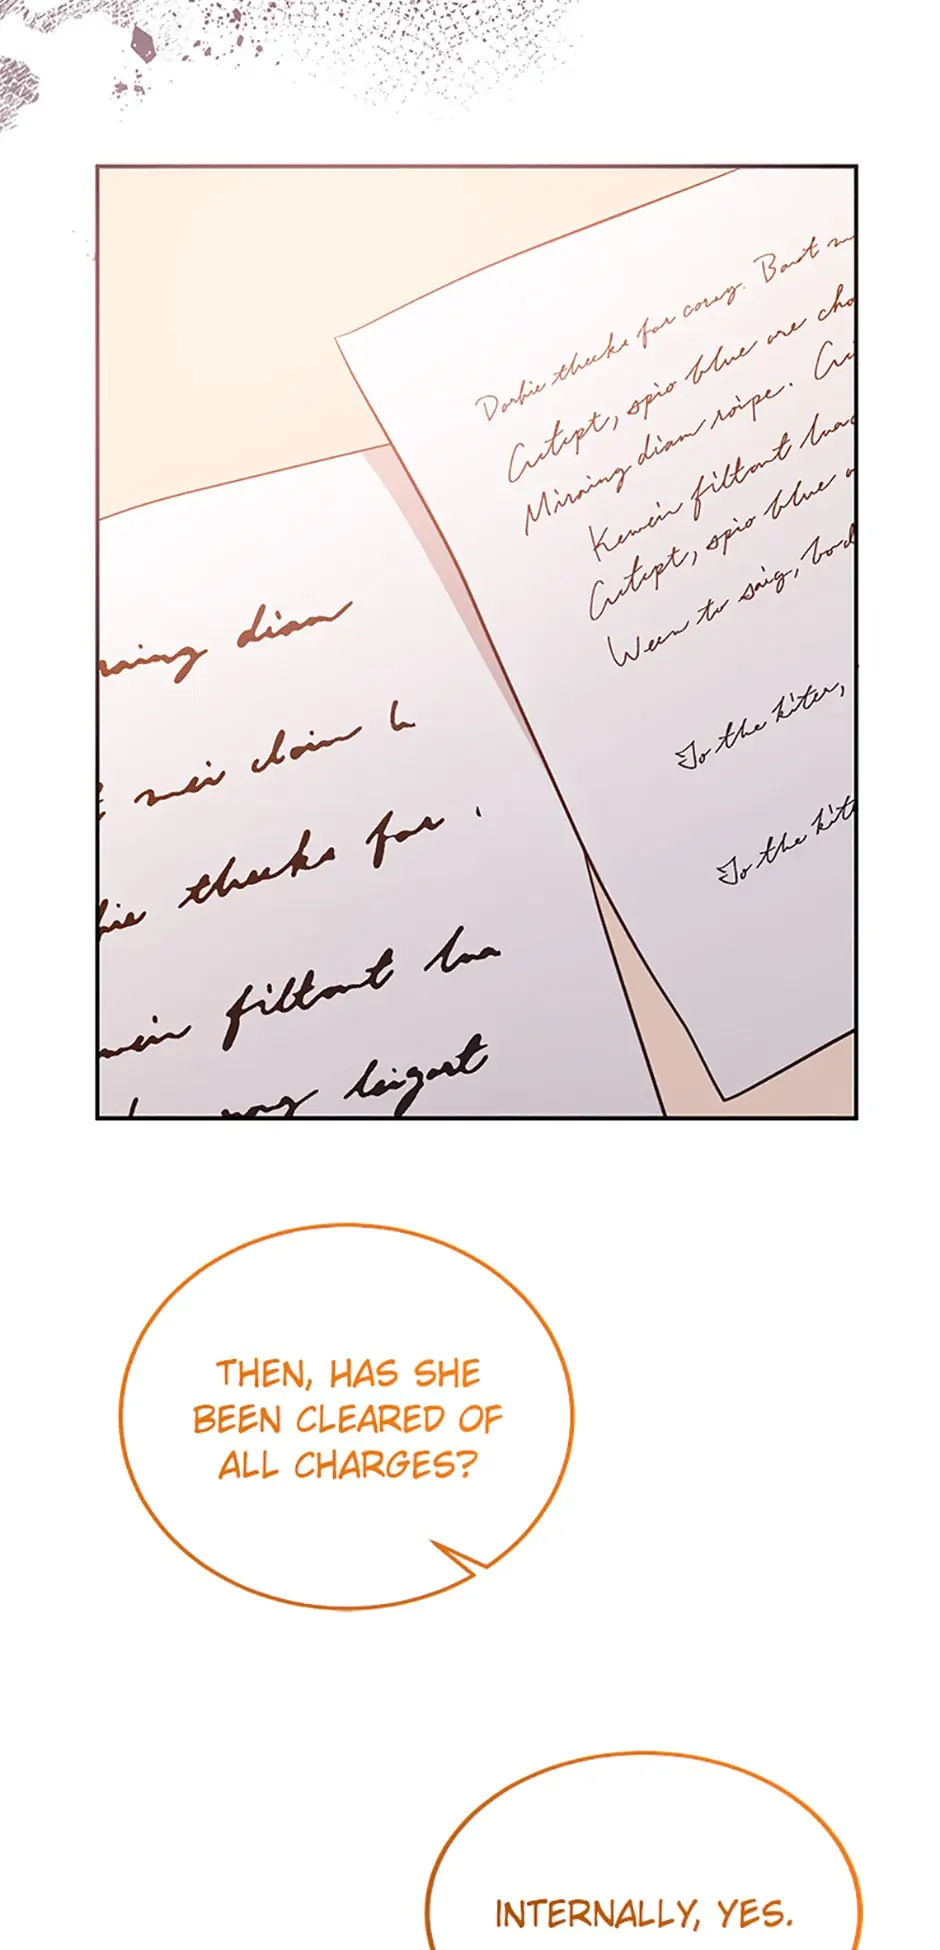 Dorbie theeks for corsy. Bout
Cutept, spio blue are cho
Mirning diam roipe.
Kewein filtont lua
Cutept, spio blue
Ween to saig, bod
To the kiter,
To the kit
rning diam
mei claim l
bie theeks for
wein filtont lua
leigart
THEN, HAS SHE
BEEN CLEARED OF
ALL CHARGES?
INTERNALLY, YES.